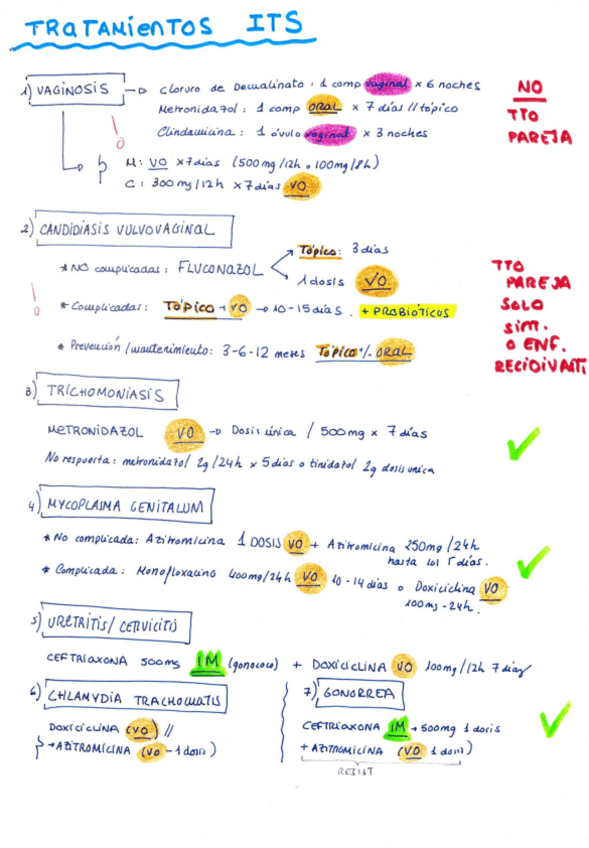 TRATAMIENTOS ITS
1) VAGINOSIS → Cloruro de Decualinato: 1 comp vaginal x 6 noches
Metronidazol: 1 comp ORAL x 7 días // tópico
Clindamicina: 1 óvulo vaginal x 3 noches
M: VO x 7 días (500mg/12h o 100mg/8h)
C: 300mg/12h x 7 días VO
NO
TTO
PAREJA
2) CANDIDIASIS VULVOVAGINAL
* NO complicadas: FLUCONAZOL
Tópico: 3 días
1 dosis VO
* Complicadas: TÓPICO + VO → 10-15 días. + PROBIÓTICOS
* Prevención/mantenimiento: 3-6-12 meses TÓPICO +/- ORAL
TTO
PAREJA
SOLO
sim.
O ENF.
RECIDIVANTE
3) TRICHOMONIASIS
METRONIDAZOL VO → Dosis única / 500mg x 7 días
No respuesta: metronidazol 2g/24h x 5 días o tinidazol 2g dosis unica
4) MYCOPLASMA GENITALUM
* No complicada: Azitromicina 1 DOSIS VO + Azitromicina 250mg/24h
hasta los 5 días.
* Complicada: Monofloxacino 400mg/24h VO 10-14 días o Doxiciclina VO
100mg-24h.
5) URETRITIS/CERVICITIS
CEFTRIAXONA 500mg IM (gonococo) + DOXICICLINA VO 100mg/12h 7 días
6) CHLAMYDIA TRACHOMATIS
DOXICICLINA (VO) //
+ AZITROMICINA (VO - 1 dosis)
7) GONORREA
CEFTRIAXONA IM → 500mg 1 dosis
+ AZITROMICINA (VO 1 dosis)
RESIST